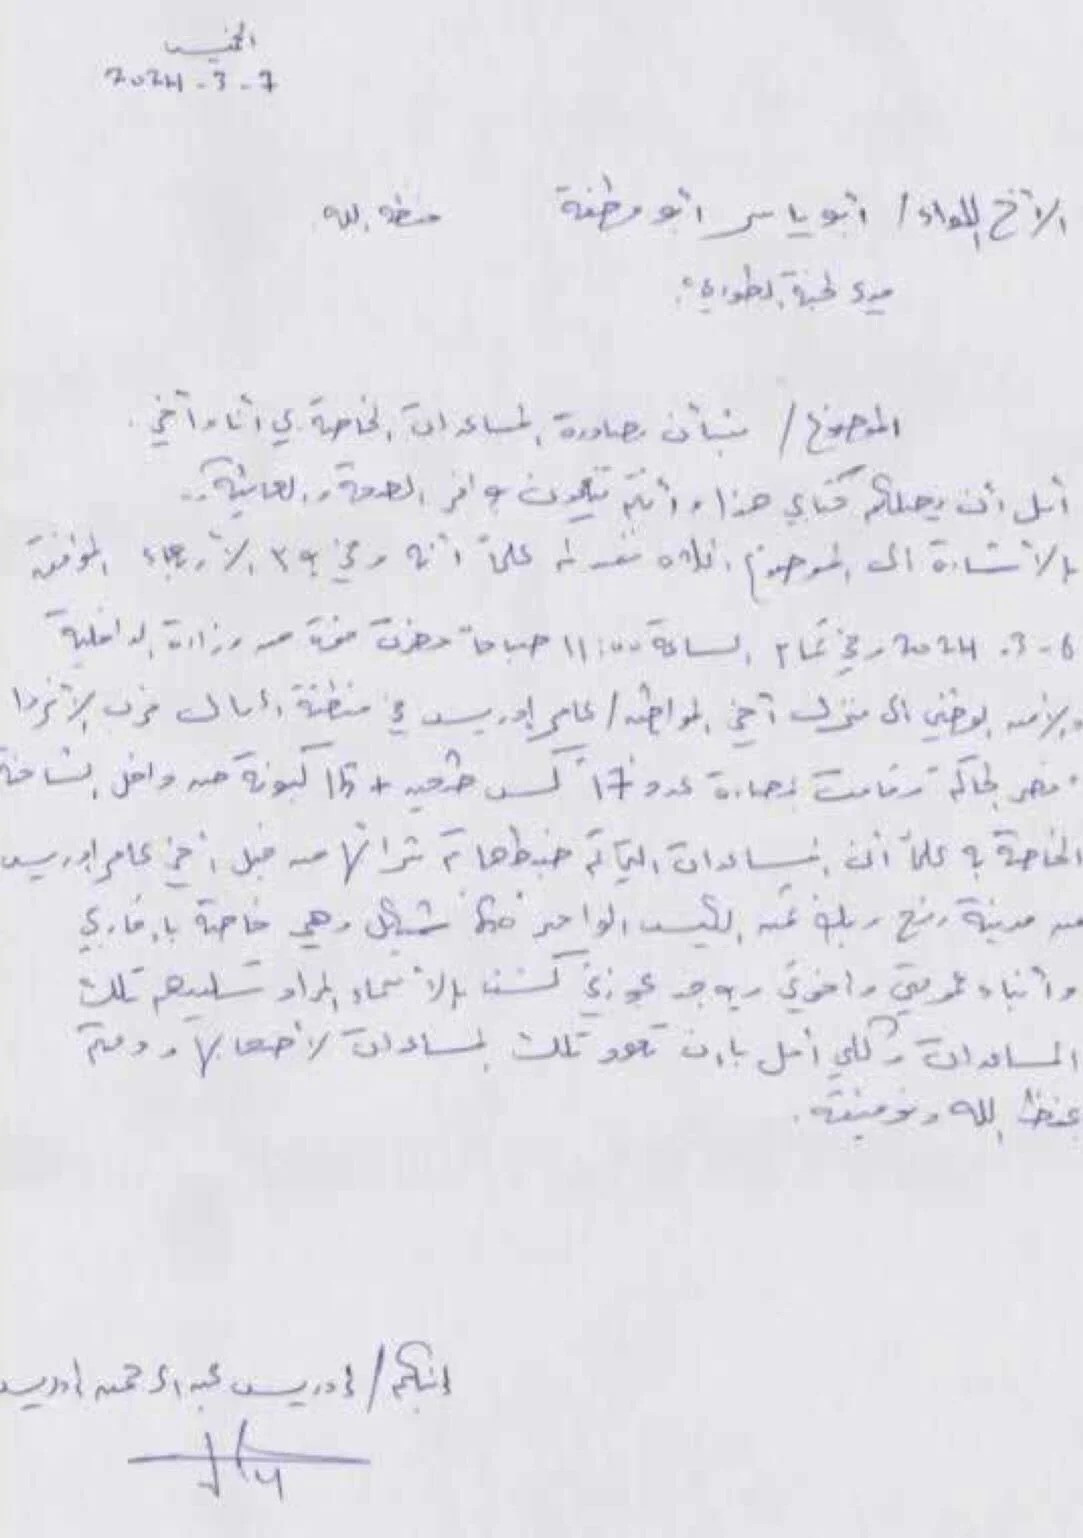 الخميس
7-3-2024
الأخ اللواء/ أبو ياسر أبو مطحنة حفظه الله
مدير لجنة الطوارئ
الموضوع/ بشأن مصادرة المساعدات الخاصة بي أنا وأخي.
أمل أن يصلكم كتابي هذا وأنتم تنعمون بوافر الصحة والعافية..
بالأشارة الى الموضوع أعلاه علماً أنه وفي يوم الأربعاء الموافق
6-3-2024 وفي تمام الساعة 11:00 صباحاً حضرت قوة من وزارة الداخلية
والأمن الوطني الى منزل أخي المواطن/ عامر إدريس في منطقة
قصر الحاكم وقامت بمصادرة عدد "17" كيس طحين + 15 كبونة من داخل الشاحنة
الخاصة به علماً أن المساعدات التي تم ضبطها تم شرائها من قبل أخي عامر إدريس
من مدينة رفح وبلغ ثمن الكيس الواحد شيكل وهي خاصة بأقاربي
وأبناء عمومتي وأخوتي ويوجد بحوزتي كشف بالأسماء المراد تسليمهم تلك
المساعدات وكلي أمل بأن تعود تلك المساعدات لأصحابها ودمتم
بحفظ الله وتوفيقه.
إبنكم/ إدريس عبد الرحمن إدريس